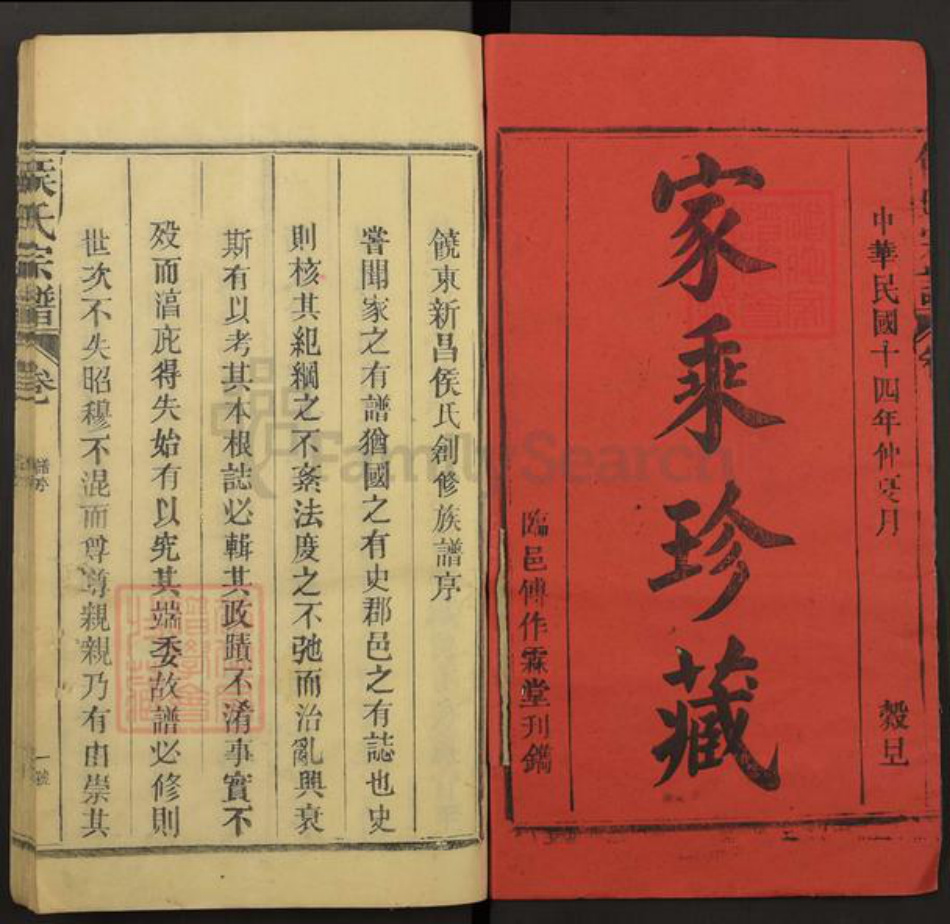 中華民國十四年仲夏月
穀旦
家乘珍藏
臨邑傅作霖堂刊鐫
饒東新昌侯氏創修族譜序
嘗聞家之有譜猶國之有史郡邑之有誌也史
則核其紀綱之不紊法度之不弛而治亂興衰
斯有以考其本根誌必輯其政蹟不淆事實不
歿而滈庇得失始有以究其端委故譜必修則
世次不失昭穆不混而尊尊親親乃有由崇其
侯氏宗譜
卷
譜序
一號
FamilySearch